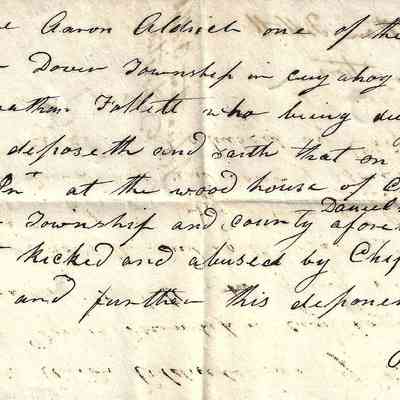 e Aaron Aldrich one of the
Dover Township in cuyahog
eathan Fallett who being du
deposeth and saith that on
Pnt at the wood house of C
Township and county afore
Daniel
kicked and abused by Chip
and further this deponen